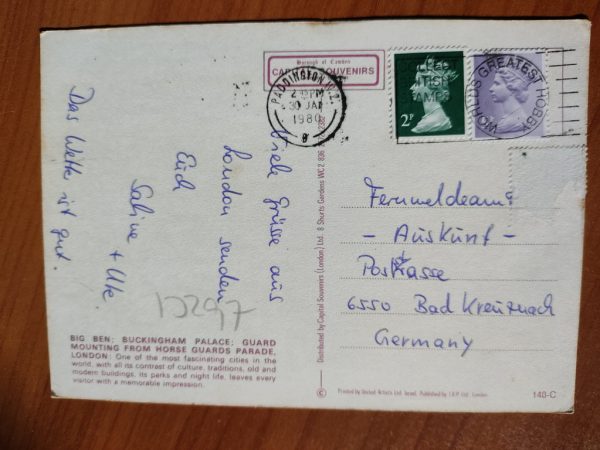 Borough of Camden
CAPITAL SOUVENIRS
PADDINGTON W.2.
30 JAN
1980
COLLECT
BRITISH
STAMPS
WORLD'S GREATEST HOBBY
2P
Viele Grüsse aus
London senden
Euch
Sabine + Ute
Das Wette ist gut.
Fernmeldeamt
- Auskunft -
Poststrasse
6550 Bad Kreuznach
Germany
13297
BIG BEN: BUCKINGHAM PALACE: GUARD
MOUNTING FROM HORSE GUARDS PARADE,
LONDON: One of the most fascinating cities in the
world, with all its contrast of culture, traditions, old and
modern buildings, its parks and night life, leaves every
visitor with a memorable impression.
Distributed by Capital Souvenirs (London) Ltd. 8 Shorts Gardens WC2 836
©
Printed by United Artists Ltd. Israel. Published by L.K.P. Ltd. London
140-C